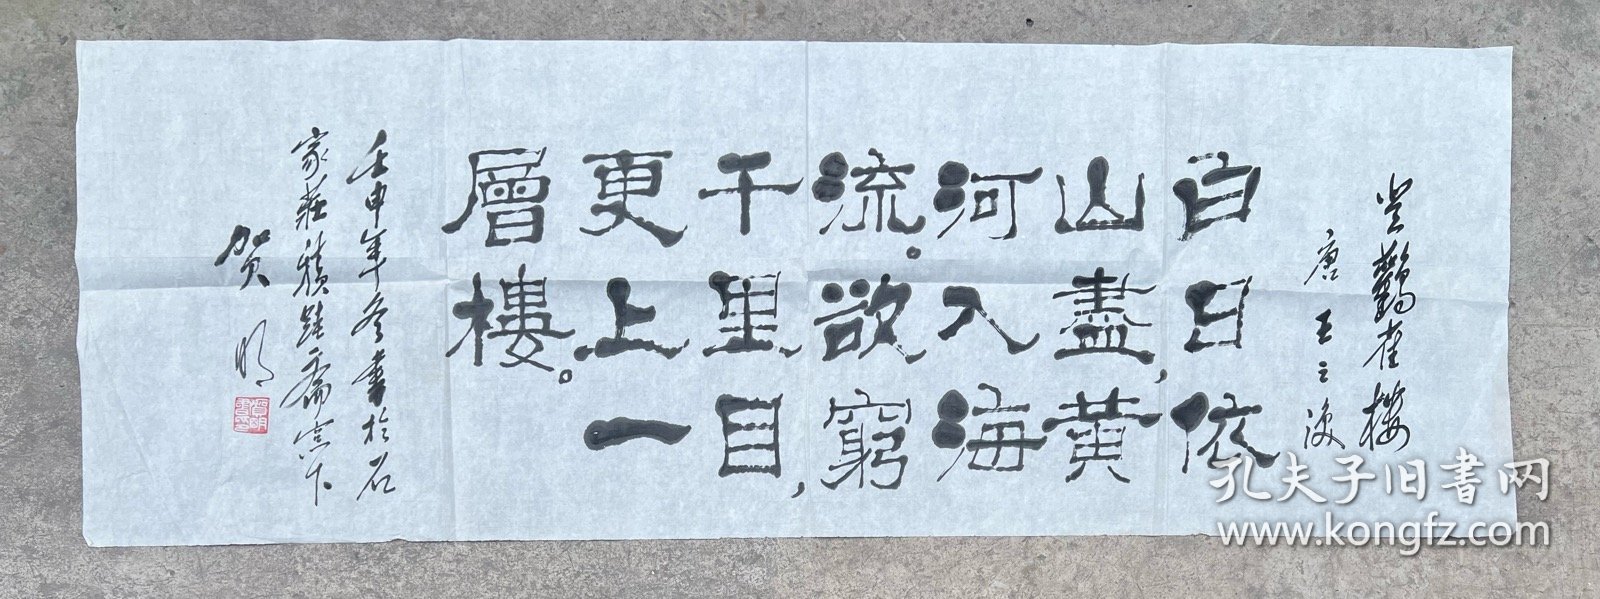 登鸛雀樓
唐 王之渙
白日依
山盡，黃
河入海
流。欲窮
千里目，
更上一
層樓。
壬申年冬書於石
家莊積跬齋窗下
贺明
孔夫子旧书网
www.kongfz.com